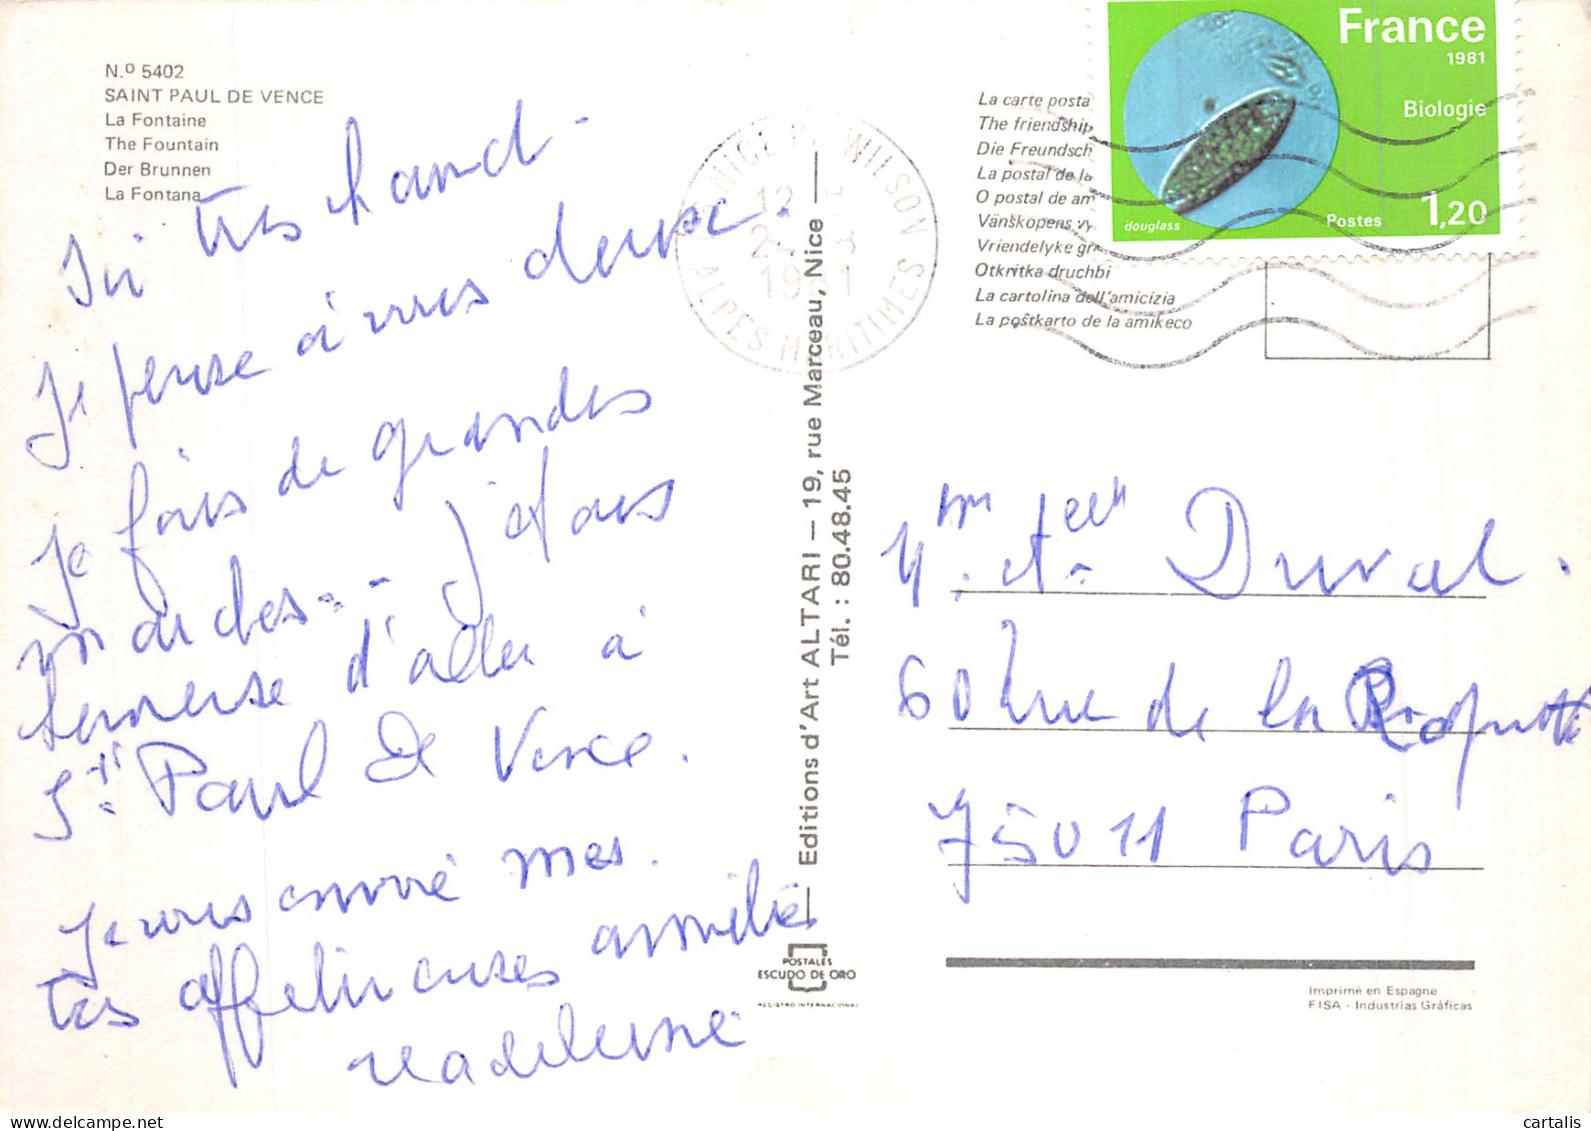 N.º 5402
SAINT PAUL DE VENCE
La Fontaine
The Fountain
Der Brunnen
La Fontana
Ici très chaud.
Je pense à vous deux.
Je fais de grandes
marches... j'étais
heureuse d'aller à
St Paul de Vence.
Je vous envoie mes
très affectueuses amitiés
Madeleine
NICE R. WILSON
12 H
1981
ALPES MARITIMES
Editions d'Art ALTARI — 19, rue Marceau, Nice
Tél. : 80.48.45
POSTALES
ESCUDO DE ORO
REGISTRO INTERNACIONAL
La carte posta
The friendship
Die Freundsch
La postal de la
O postal de am
Vänskopens vy
Vriendelyke gr
Otkritka druchbi
La cartolina dell'amicizia
La poŝtkarto de la amikeco
France
1981
Biologie
douglass
Postes
1,20
Duval.
60 rue de la Roquette
75011 Paris
Imprimé en Espagne
FISA - Industrias Gráficas
cartalis